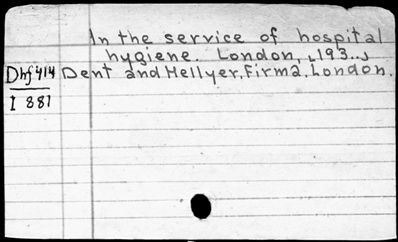 In the service of hospital
hygiene. London, [193..]
Dhf 414 Dent and Hellyer, Firma, London.
I 881